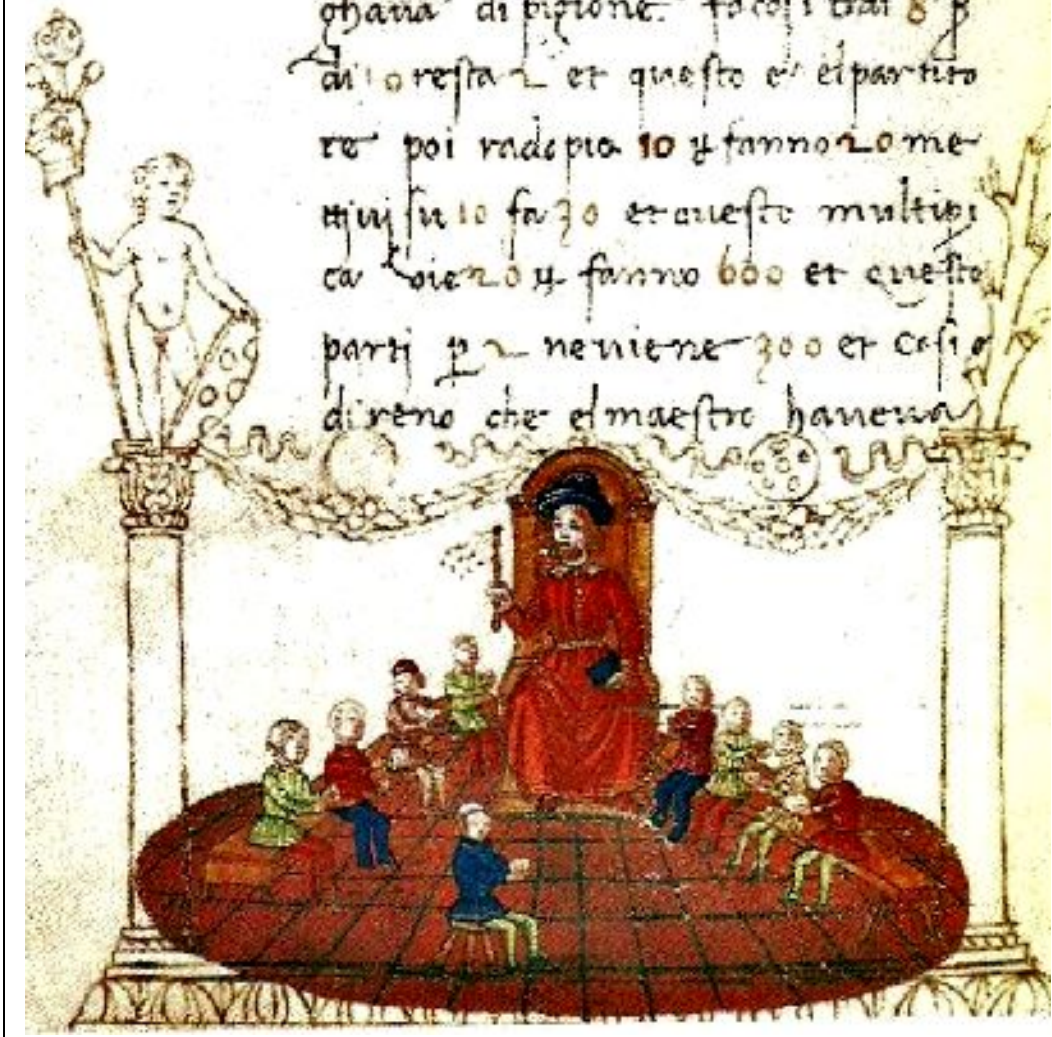 ghaua di pigione. fa cosi trai 8 p
di 10 resta 2 et questo e elpartito
re poi radopia 10 fanno 20 me
ttiui su 10 fa 30 et questo multipi
ca vie 20 fanno 600 et questo
parti p 2 neuiene 300 et cosi
direno che elmaestro haueua